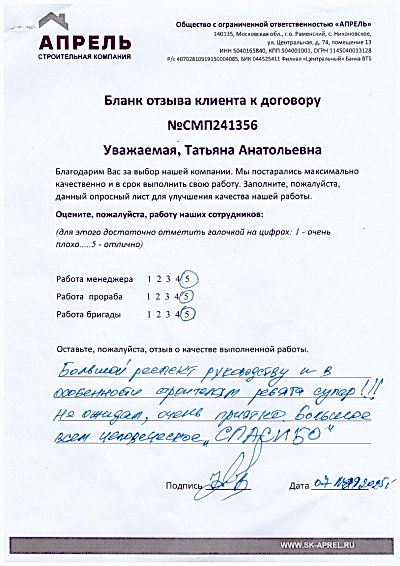 АПРЕЛЬ
СТРОИТЕЛЬНАЯ КОМПАНИЯ
Общество с ограниченной ответственностью «АПРЕЛЬ»
140135, Московская обл., г.о. Раменский, с. Никоновское,
ул. Центральная, д. 74, помещение 13
ИНН 5040165840, КПП 504001001, ОГРН 1145040013128
Р/с 40702810919150004085, БИК 044525411 Филиал «Центральный» Банка ВТБ
Бланк отзыва клиента к договору
№СМП241356
Уважаемая, Татьяна Анатольевна
Благодарим Вас за выбор нашей компании. Мы постарались максимально
качественно и в срок выполнить свою работу. Заполните, пожалуйста,
данный опросный лист для улучшения качества нашей работы.
Оцените, пожалуйста, работу наших сотрудников:
(для этого достаточно отметить галочкой на цифрах: 1 - очень
плохо.....5 - отлично)
Работа менеджера 1 2 3 4 5
Работа прораба 1 2 3 4 5
Работа бригады 1 2 3 4 5
Оставьте, пожалуйста, отзыв о качестве выполненной работы.
Большой респект руководству и в
особенности строителям ребята супер!!!
Не ожидал, очень приятно. Большое
всем человеческое „СПАСИБО"
Подпись Дата
WWW.SK-APREL.RU